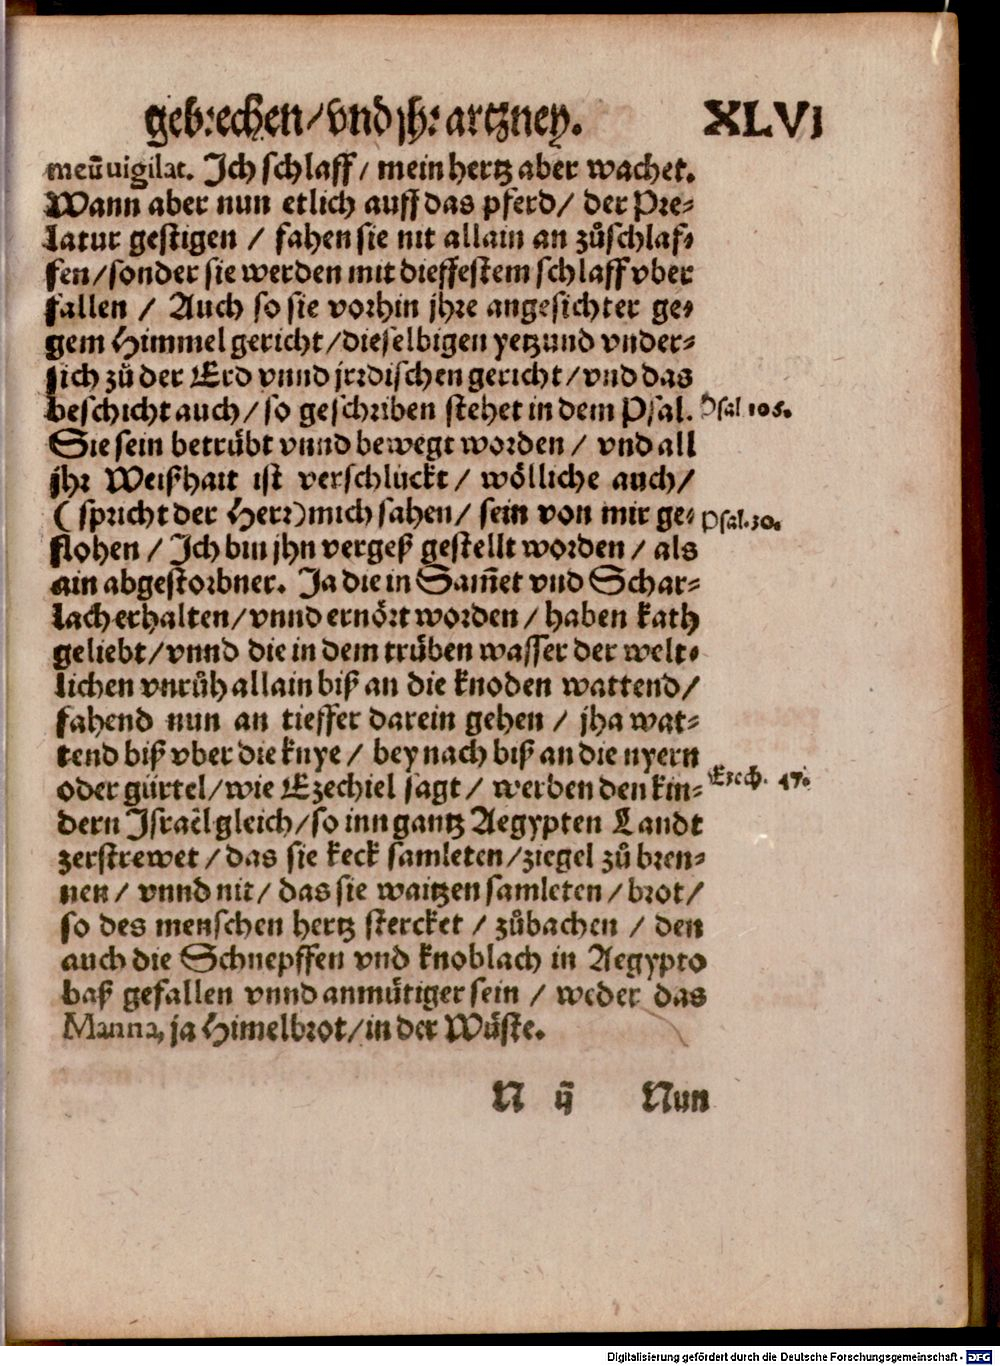 gebrechen/vnd jhr artzney. XLVI
meū vigilat. Ich schlaff/ mein hertz aber wachet.
Wann aber nun etlich auff das pferd/ der Pre⸗
latur gestigen / fahen sie nit allain an zůschlaf⸗
fen/sonder sie werden mit dieffestem schlaff vber
fallen / Auch so sie vorhin jhre angesichter ge⸗
gem Himmel gericht/dieselbigen yetzund vnder⸗
sich zů der Erd vnnd jrrdischen gericht/vnd das
beschicht auch/so geschriben stehet in dem Psal. Psal 105.
Sie sein betrübt vnnd bewegt worden/ vnd all
jhr Weißhait ist verschluckt/ wölliche auch/
(spricht der Herr) mich sahen/ sein von mir ge⸗ Psal.30.
flohen / Ich bin jhn vergeß gestellt worden / als
ain abgestorbner. Ja die in Sam̄et vnd Schar⸗
lach erhalten/vnnd ernört worden/ haben kath
geliebt/vnnd die in dem trüben wasser der welt⸗
lichen vnrůh allain biß an die knoden wattend/
fahend nun an tieffer darein gehen / jha wat⸗
tend biß vber die knye / bey nach biß an die nyern
oder gürtel/wie Ezechiel sagt/ werden den kin⸗ Ezech. 47.
dern Israël gleich/so inn gantz Aegypten Landt
zerstrewet/das sie keck samleten/ziegel zů bren⸗
nen/ vnnd nit/ das sie waitzen samleten/brot/
so des menschen hertz stercket / zůbachen / den
auch die Schnepffen vnd knoblach in Aegypto
baß gefallen vnnd anmütiger sein / weder das
Manna, ja Himelbrot/in der Wüste.
N ij Nun
Digitalisierung gefördert durch die Deutsche Forschungsgemeinschaft - DFG